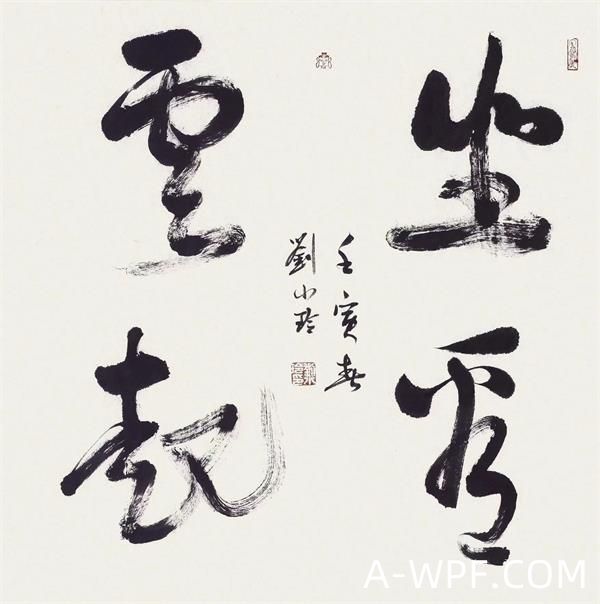 坐看
雲起
壬寅春
劉小玲
A-WPF.COM